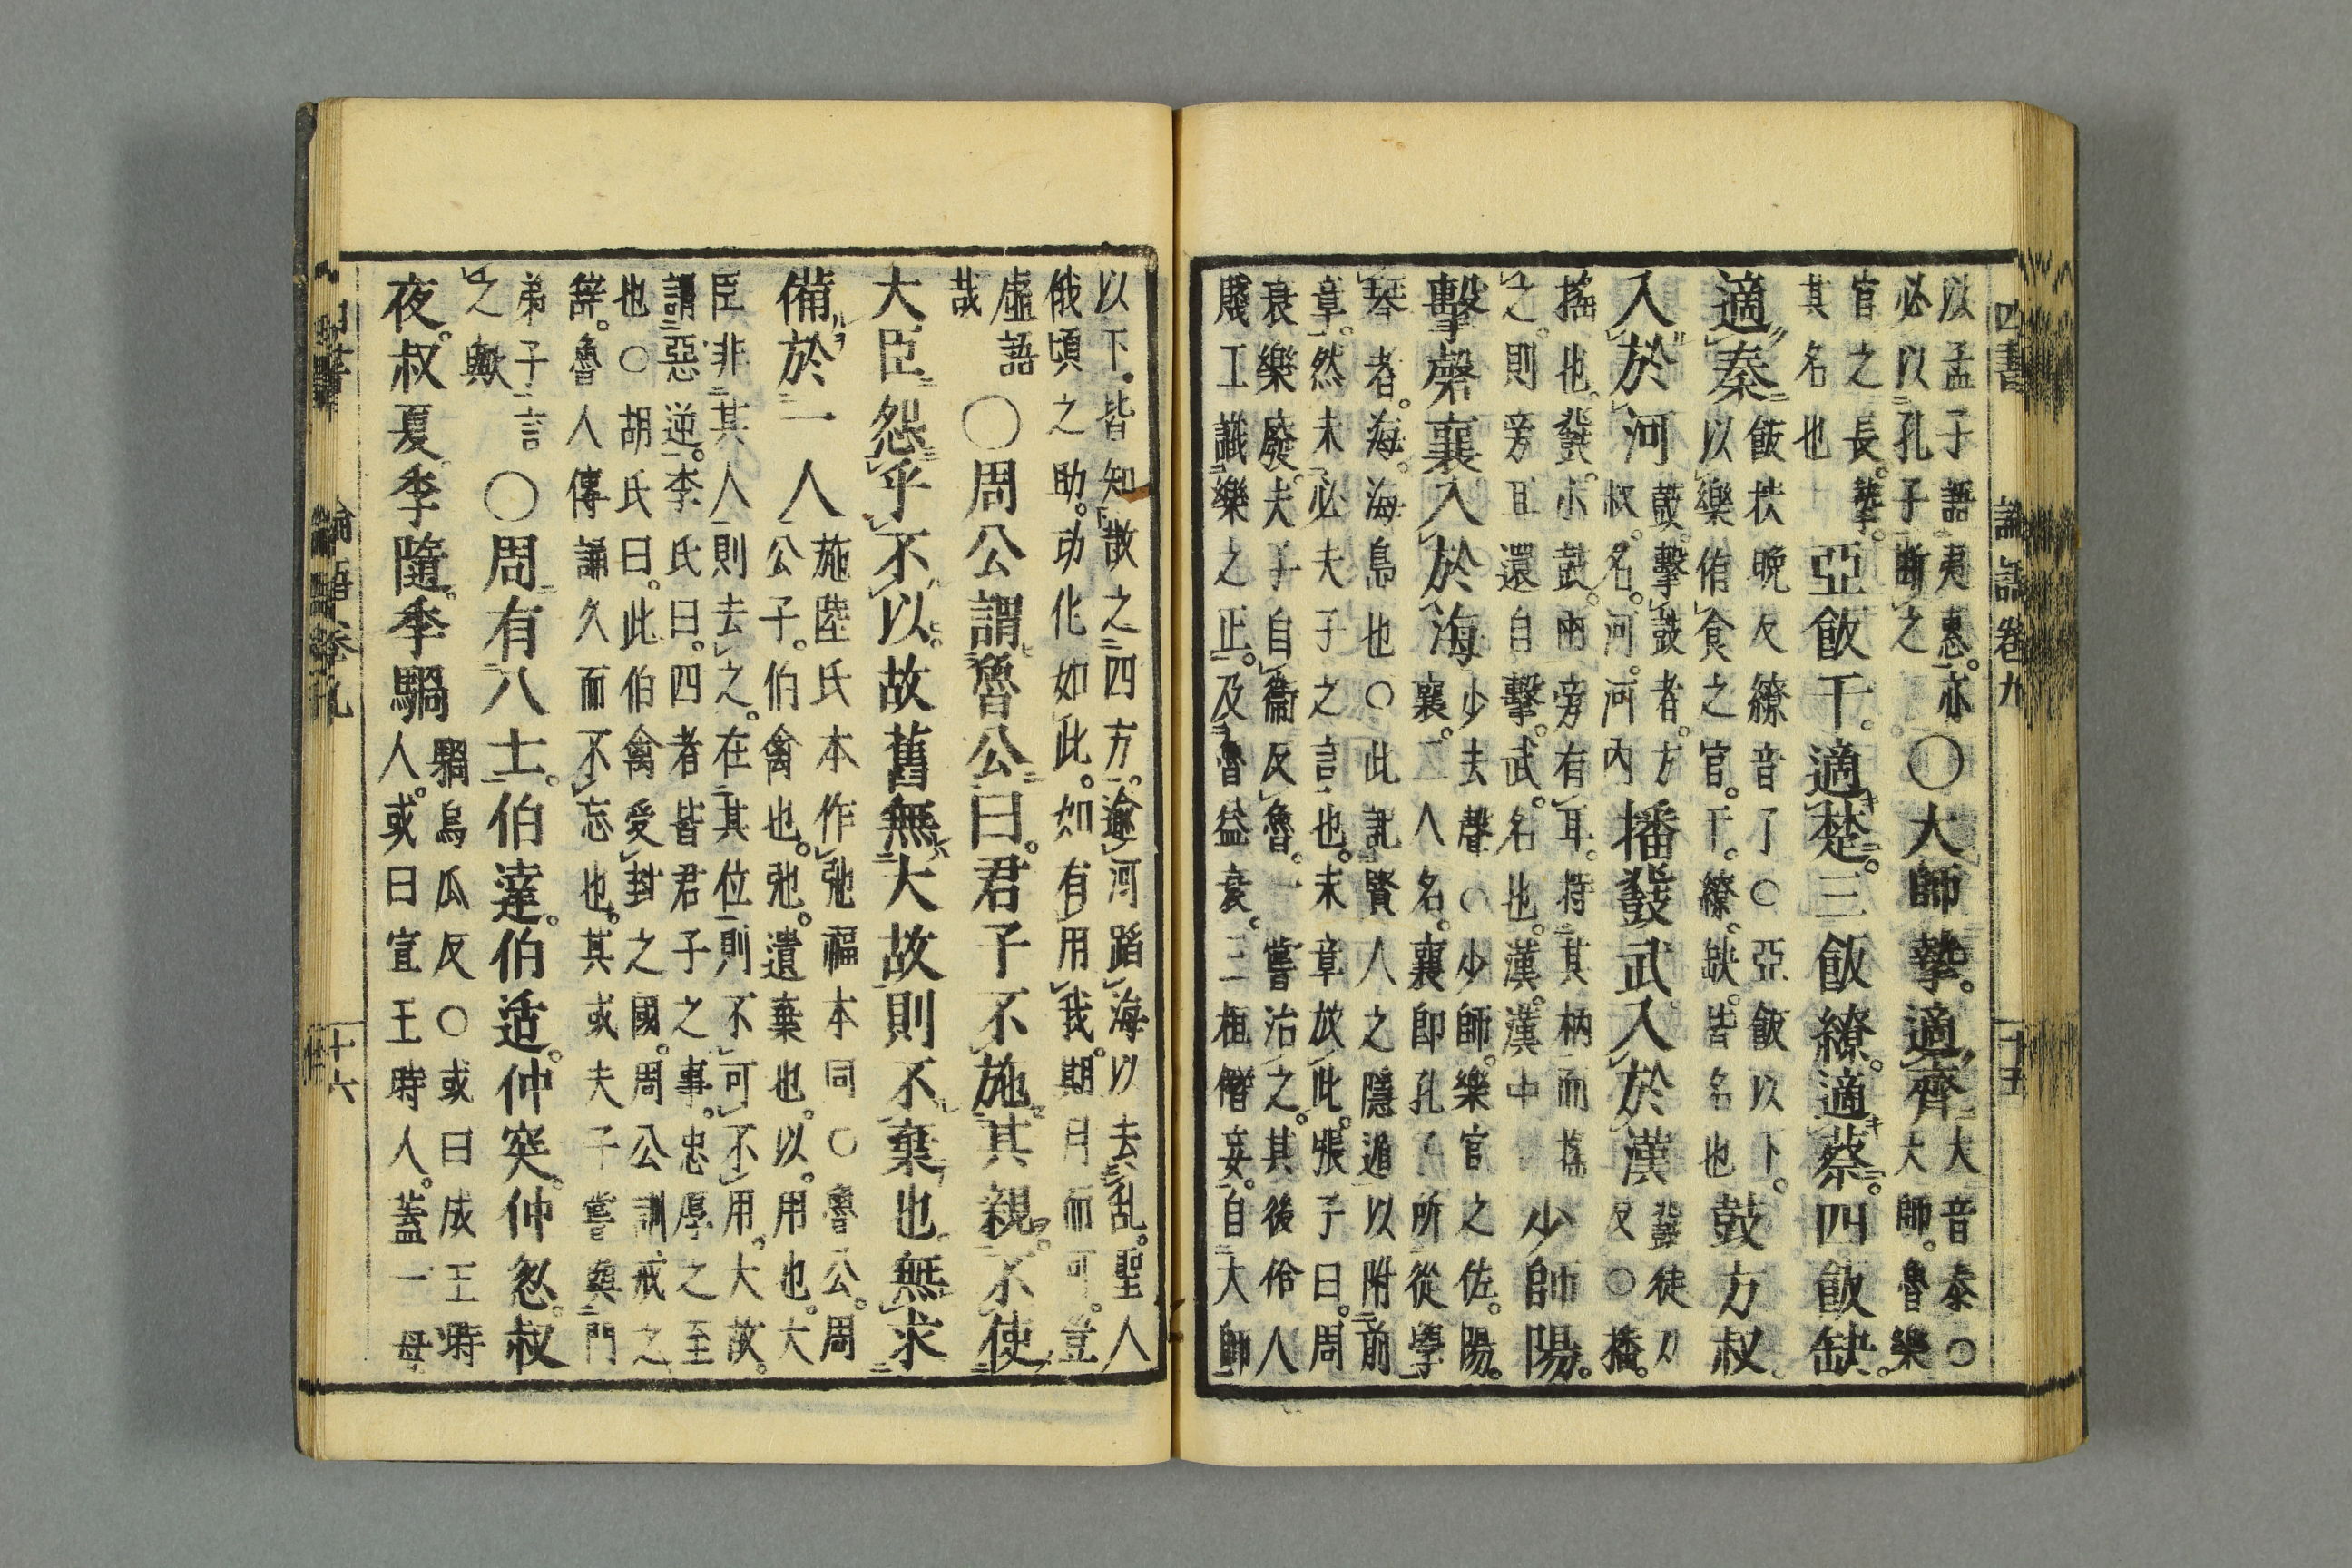 四書 論語卷九 十五
以孟子語夷惠亦
必以孔子断之
〇大師摯適齊
大音泰〇
大師魯樂
官之長摯
其名也
亞飯干適楚三飯繚適蔡四飯缺
適秦
飯扶晩反繚音了〇亞飯以下
以樂侑食之官干繚缺皆名也
鼓方叔
入於河
鼓擊鼓者方
叔名河河内
播鼗武入於漢
鼗徒刀
反〇播
搖也鼗小鼓兩旁有耳持其柄而搖
之則旁耳還自擊武名也漢漢中
少師陽
擊磬襄入於海
少去聲〇少師樂官之佐陽
襄二人名襄即孔子所從學
琴者海海島也〇此記賢人之隱遁以附前
章然未必夫子之言也末章放此張子曰周
衰樂廢夫子自衞反魯一嘗治之其後伶人
賤工識樂之正及魯益衰三桓僭妄自大師
以下皆知散之四方逾河蹈海以去乱聖人
俄頃之助功化如此如有用我期月而可豈
虛語
哉
〇周公謂魯公曰君子不施其親不使
大臣怨乎不以故舊無大故則不棄也無求
備於一人
施陸氏本作弛福本同〇魯公周
公子伯禽也弛遺棄也以用也大
臣非其人則去之在其位則不可不用大故
謂惡逆李氏曰四者皆君子之事忠厚之至
也〇胡氏曰此伯禽受封之國周公訓戒之
辭魯人傳誦久而不忘也其或夫子嘗與門
弟子言
之歟
〇周有八士伯達伯适仲突仲忽叔
夜叔夏季隨季騧
騧烏瓜反〇或曰成王時
人或曰宣王時人蓋一母
論語卷九 十六